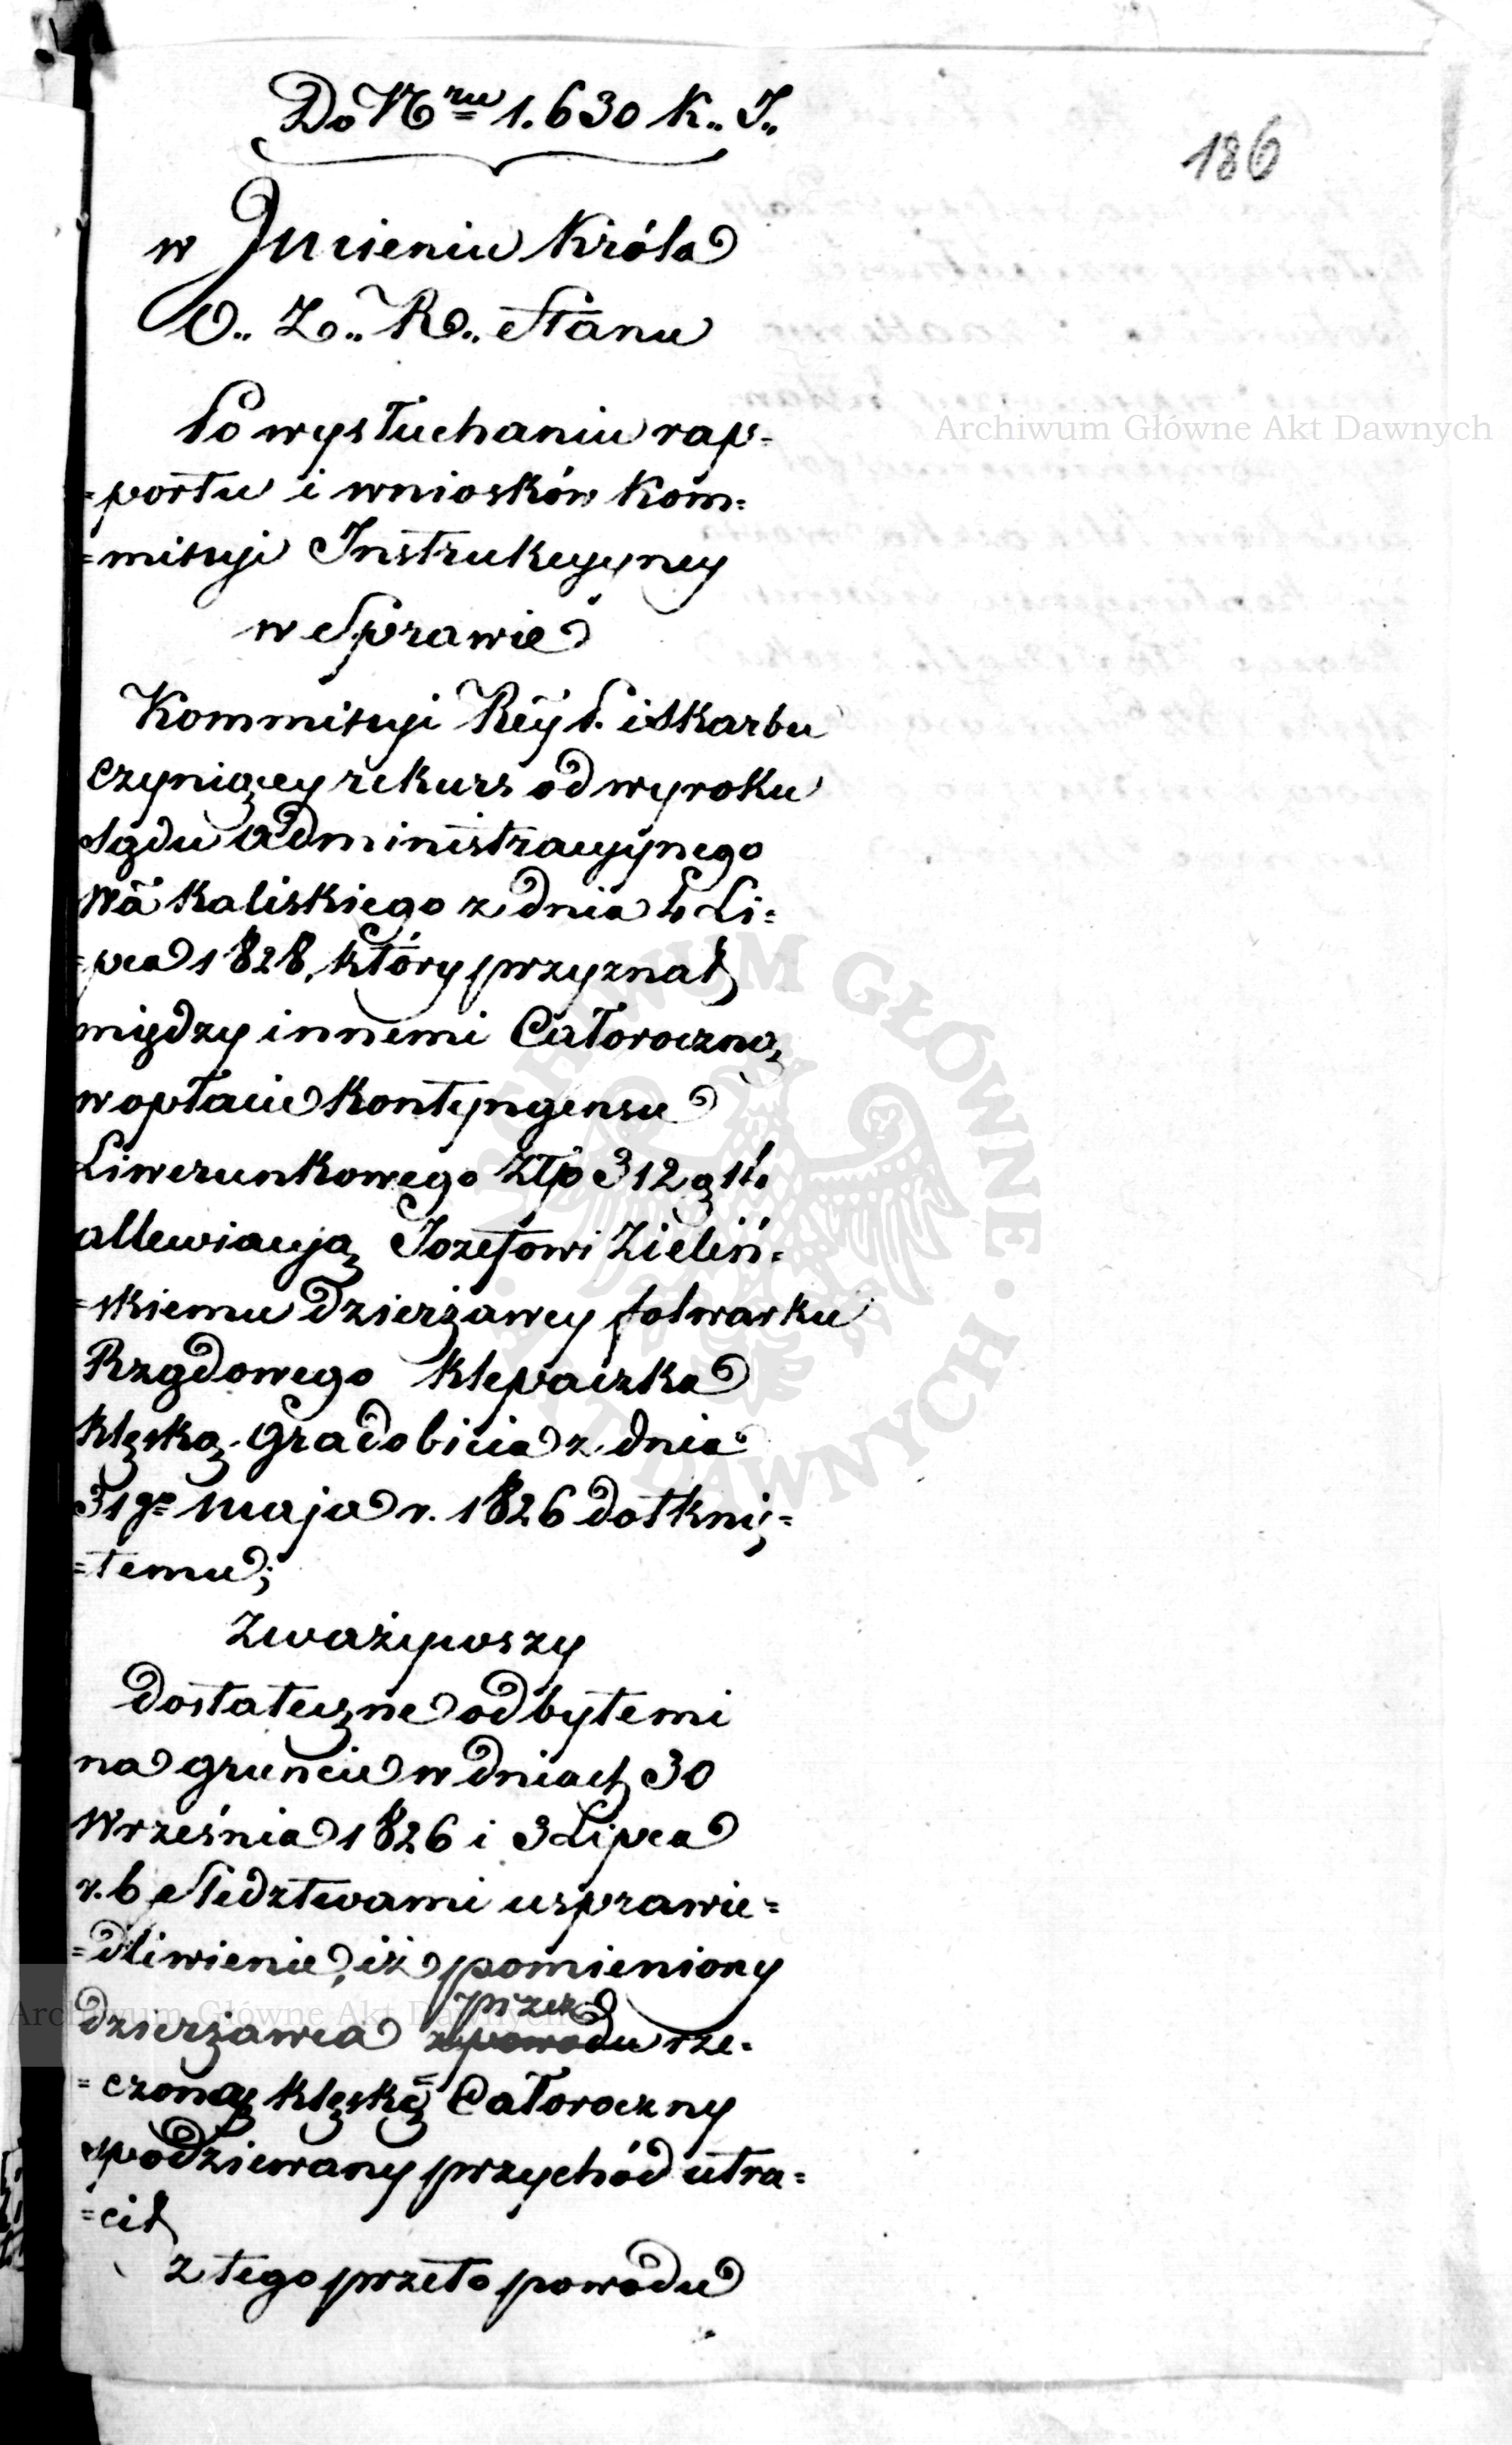 Do Nru 1.630 K.. I..
186
w Imieniu Króla
O.. Z.. R.. Stanu
Po wysłuchaniu rap=
=portu i wniosków Kom=
=missyi Instrukcyyney
w Sprawie
Kommissyi Rёy P. i Skarbu
czyniącey rekurs od wyroku
Sądu Administracyynego
Wa Kaliskiego z dnia 4 Li=
=pca 1828, który przyznał
między innemi Całoroczną
w opłacie Kontyngensu
Liwerunkowego Złp 312 g 14
allewiacyą Jozefowi Zieliń=
=skiemu dzierżawcy folwarku
Rządowego Klepaczka
klęską gradobicia z dnia
31go Maja r. 1826 dotknię=
=temu;
Zważywszy
dostateczne odbytemi
na gruncie w dniach 30
Września 1826 i 3 Lipca
r. b Sledztwami usprawie=
=dliwienie, iż pomieniony
przez
dzierżawca z powodu rze=
=czoną klęskę Całoroczny
spodziewany przychód utra=
=cił
z tego przeto powodu
Archiwum Główne Akt Dawnych
ARCHIWUM GŁÓWNE AKT DAWNYCH
Archiwum Główne Akt Dawnych